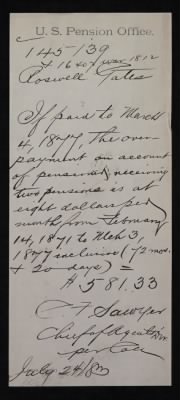 U. S. Pension Office.
145139
+ 16407 war 1812
Roswell Bates
If paid to March
4, 1877, the over-
payment on account
of pensioner receiving
two pensions is at
eight dollars per
month from February
14, 1871 to Mch 3,
1877 inclusive (72 mos.
+ 20 days) =
$ 581.33
Sawyer
Chief of Agents Div.
per
July 24/83